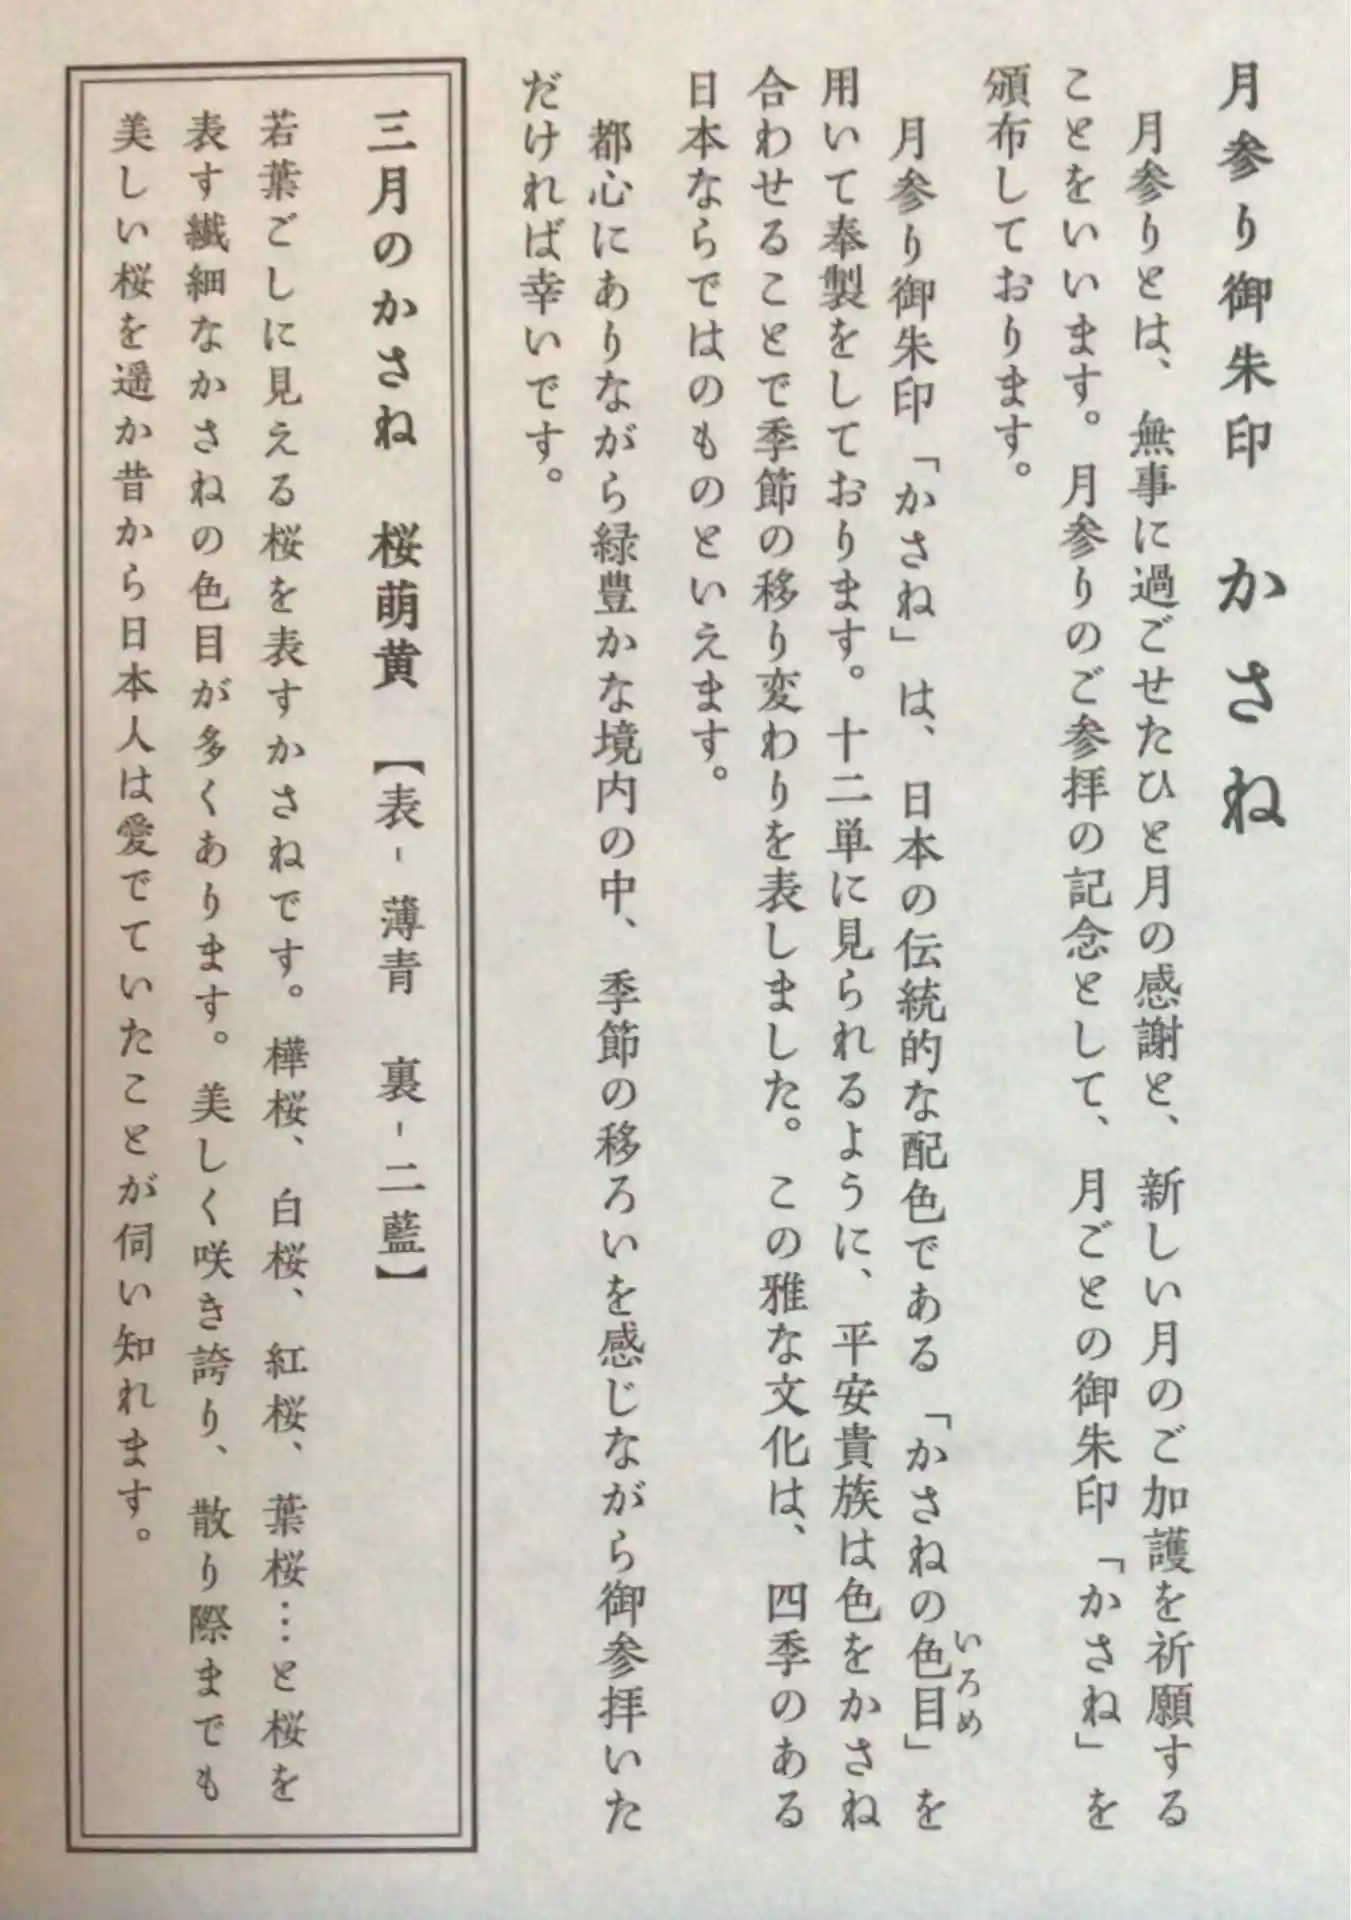 月参り御朱印　かさね
月参りとは、無事に過ごせたひと月の感謝と、新しい月のご加護を祈願する
ことをいいます。月参りのご参拝の記念として、月ごとの御朱印「かさね」を
頒布しております。
月参り御朱印「かさね」は、日本の伝統的な配色である「かさねの色目」を
いろめ
用いて奉製をしております。十二単に見られるように、平安貴族は色をかさね
合わせることで季節の移り変わりを表しました。この雅な文化は、四季のある
日本ならではのものといえます。
都心にありながら緑豊かな境内の中、季節の移ろいを感じながら御参拝いた
だければ幸いです。
三月のかさね　桜萌黄　【表-薄青　裏-二藍】
若葉ごしに見える桜を表すかさねです。樺桜、白桜、紅桜、葉桜…と桜を
表す繊細なかさねの色目が多くあります。美しく咲き誇り、散り際までも
美しい桜を遥か昔から日本人は愛でていたことが伺い知れます。